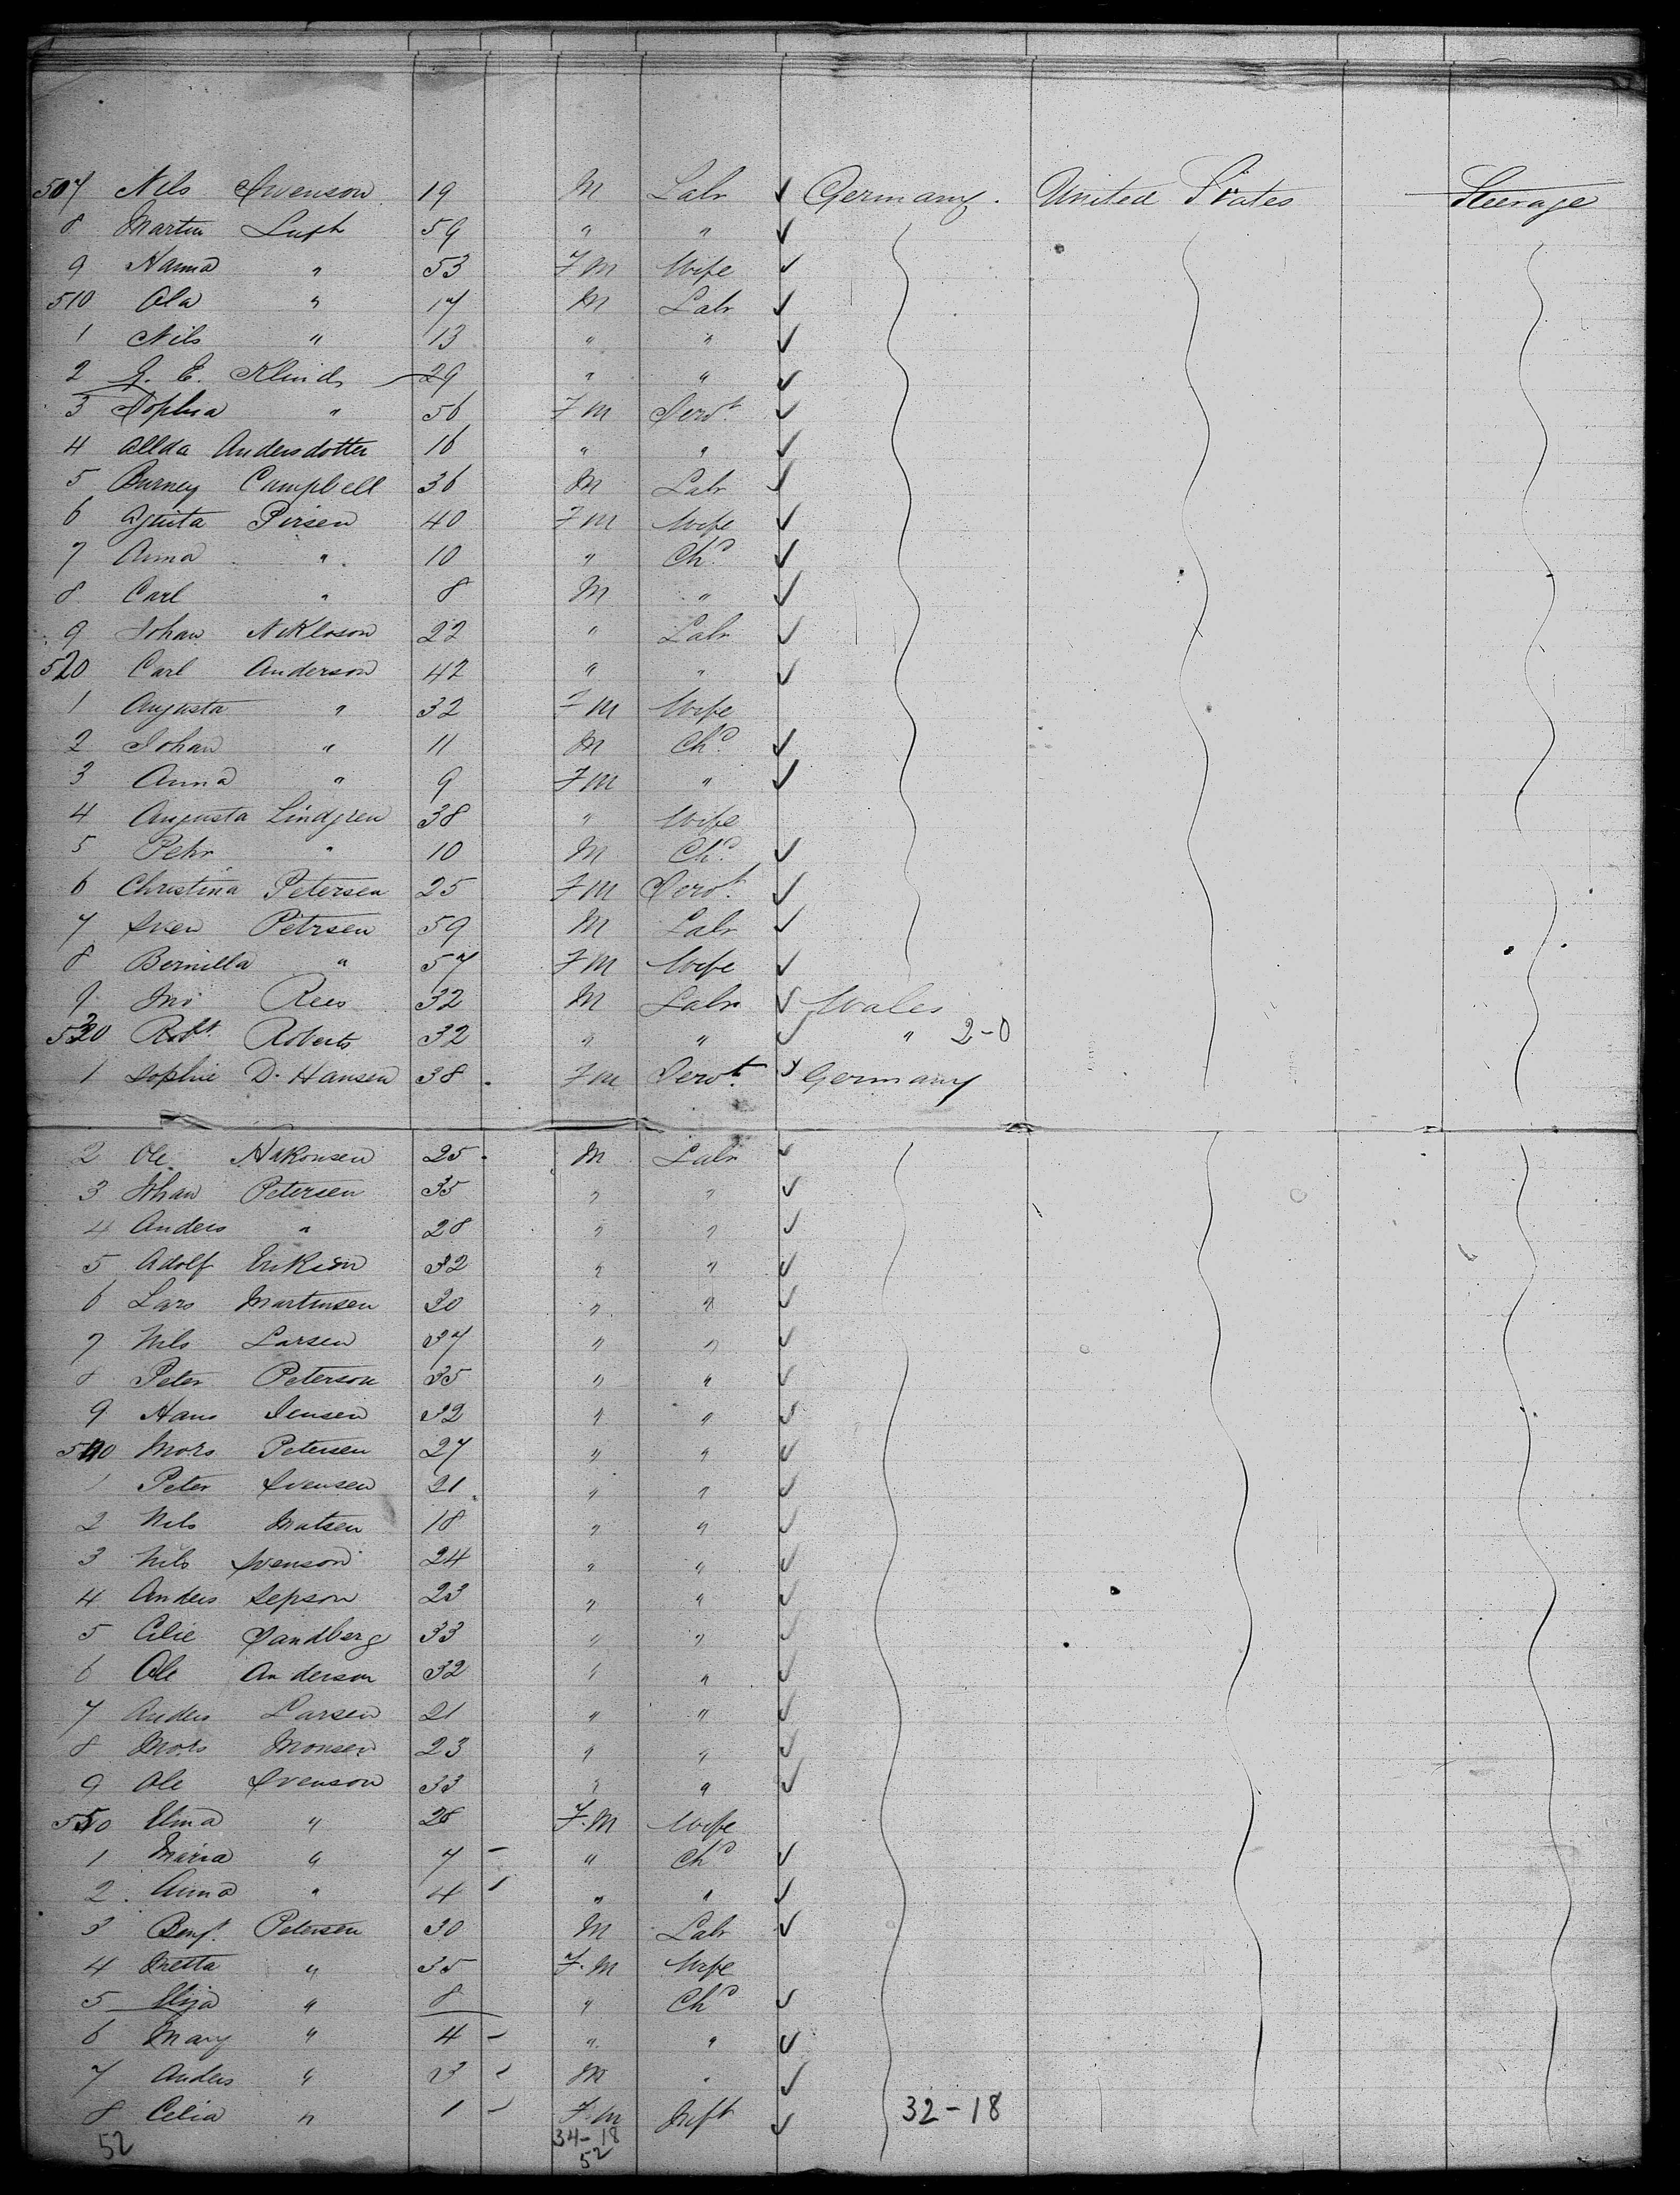 507 Nils Swenson 19 M Labr ✓ Germany. United States Steerage
8 Martin Luph 59 " " ✓
9 Hanna " 53 Fm Wife ✓
510 Ola " 17 M Labr ✓
1 Nils " 13 " " ✓
2 G. E. Klind 29 " " ✓
3 Sophia " 56 Fm Servt. ✓
4 Allda Andersdotter 16 " " ✓
5 Burney Campbell 36 M Labr ✓
6 Persen 40 Fm Wife ✓
7 Anna " 10 " Chd ✓
8 Carl " 8 M " ✓
9 Johan Nikloson 22 " Labr ✓
520 Carl Anderson 42 " " ✓
1 Augusta " 32 Fm Wife
2 Johan " 11 M Chd ✓
3 Anna " 9 Fm " ✓
4 Augusta Lindgren 38 " Wife
5 Pehr " 10 M Chd ✓
6 Christina Petersen 25 Fm Servt. ✓
7 Sven Petrsen 59 M Labr ✓
8 Bernilla " 57 Fm Wife ✓
9 Jno Rees 32 M Labr ✓ Wales
530 Robt. Roberts 32 " " ✓ " 2-0
1 Sophie D. Hansen 38 Fm Servt. ✓ Germany
2 Ole Hakonsen 25 M Labr ✓
3 Johan Petersen 35 " " ✓
4 Anders " 28 " " ✓
5 Adolf Erikson 32 " " ✓
6 Lars Martinsen 30 " " ✓
7 Nils Larsen 37 " " ✓
8 Peter Peterson 35 " " ✓
9 Hans Jensen 32 " " ✓
540 Mors Petersen 27 " " ✓
1 Peter Svensen 21 " " ✓
2 Nils Matsen 18 " " ✓
3 Nils Svenson 24 " " ✓
4 Anders Jepson 23 " " ✓
5 Celie Sandberg 33 " " ✓
6 Ole Anderson 32 " " ✓
7 Anders Larsen 21 " " ✓
8 Mors Monsen 23 " " ✓
9 Ole Svenson 33 " " ✓
550 Elna " 28 F.M Wife
1 Maria " 7 - " Chd ✓
2 Anna " 4 " " ✓
3 Bengt Petersen 30 M Labr ✓
4 Metta " 35 F.M Wife
5 Elija " 8 " Chd ✓
6 Mary " 4 - " " ✓
7 Anders " 3 M " ✓
8 Celia " 1 F.m Inft ✓ 32-18
52 34-18
52